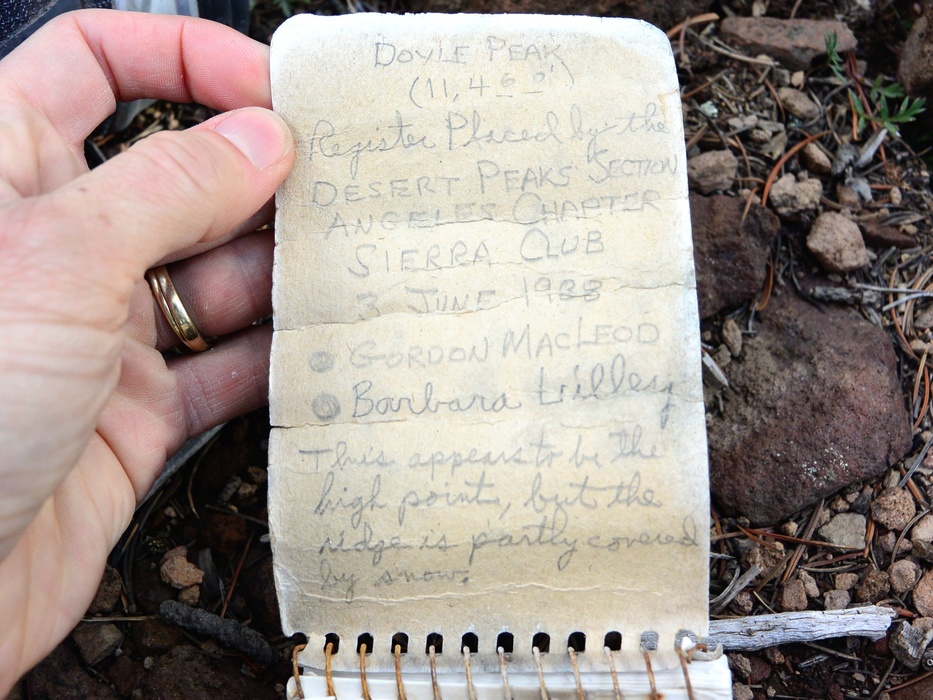 DOYLE PEAK
(11,460')
Register Placed by the
DESERT PEAKS SECTION
ANGELES CHAPTER
SIERRA CLUB
3 JUNE 1988
GORDON MACLEOD
Barbara Lilley
This appears to be the
high point, but the
ridge is partly covered
by snow.